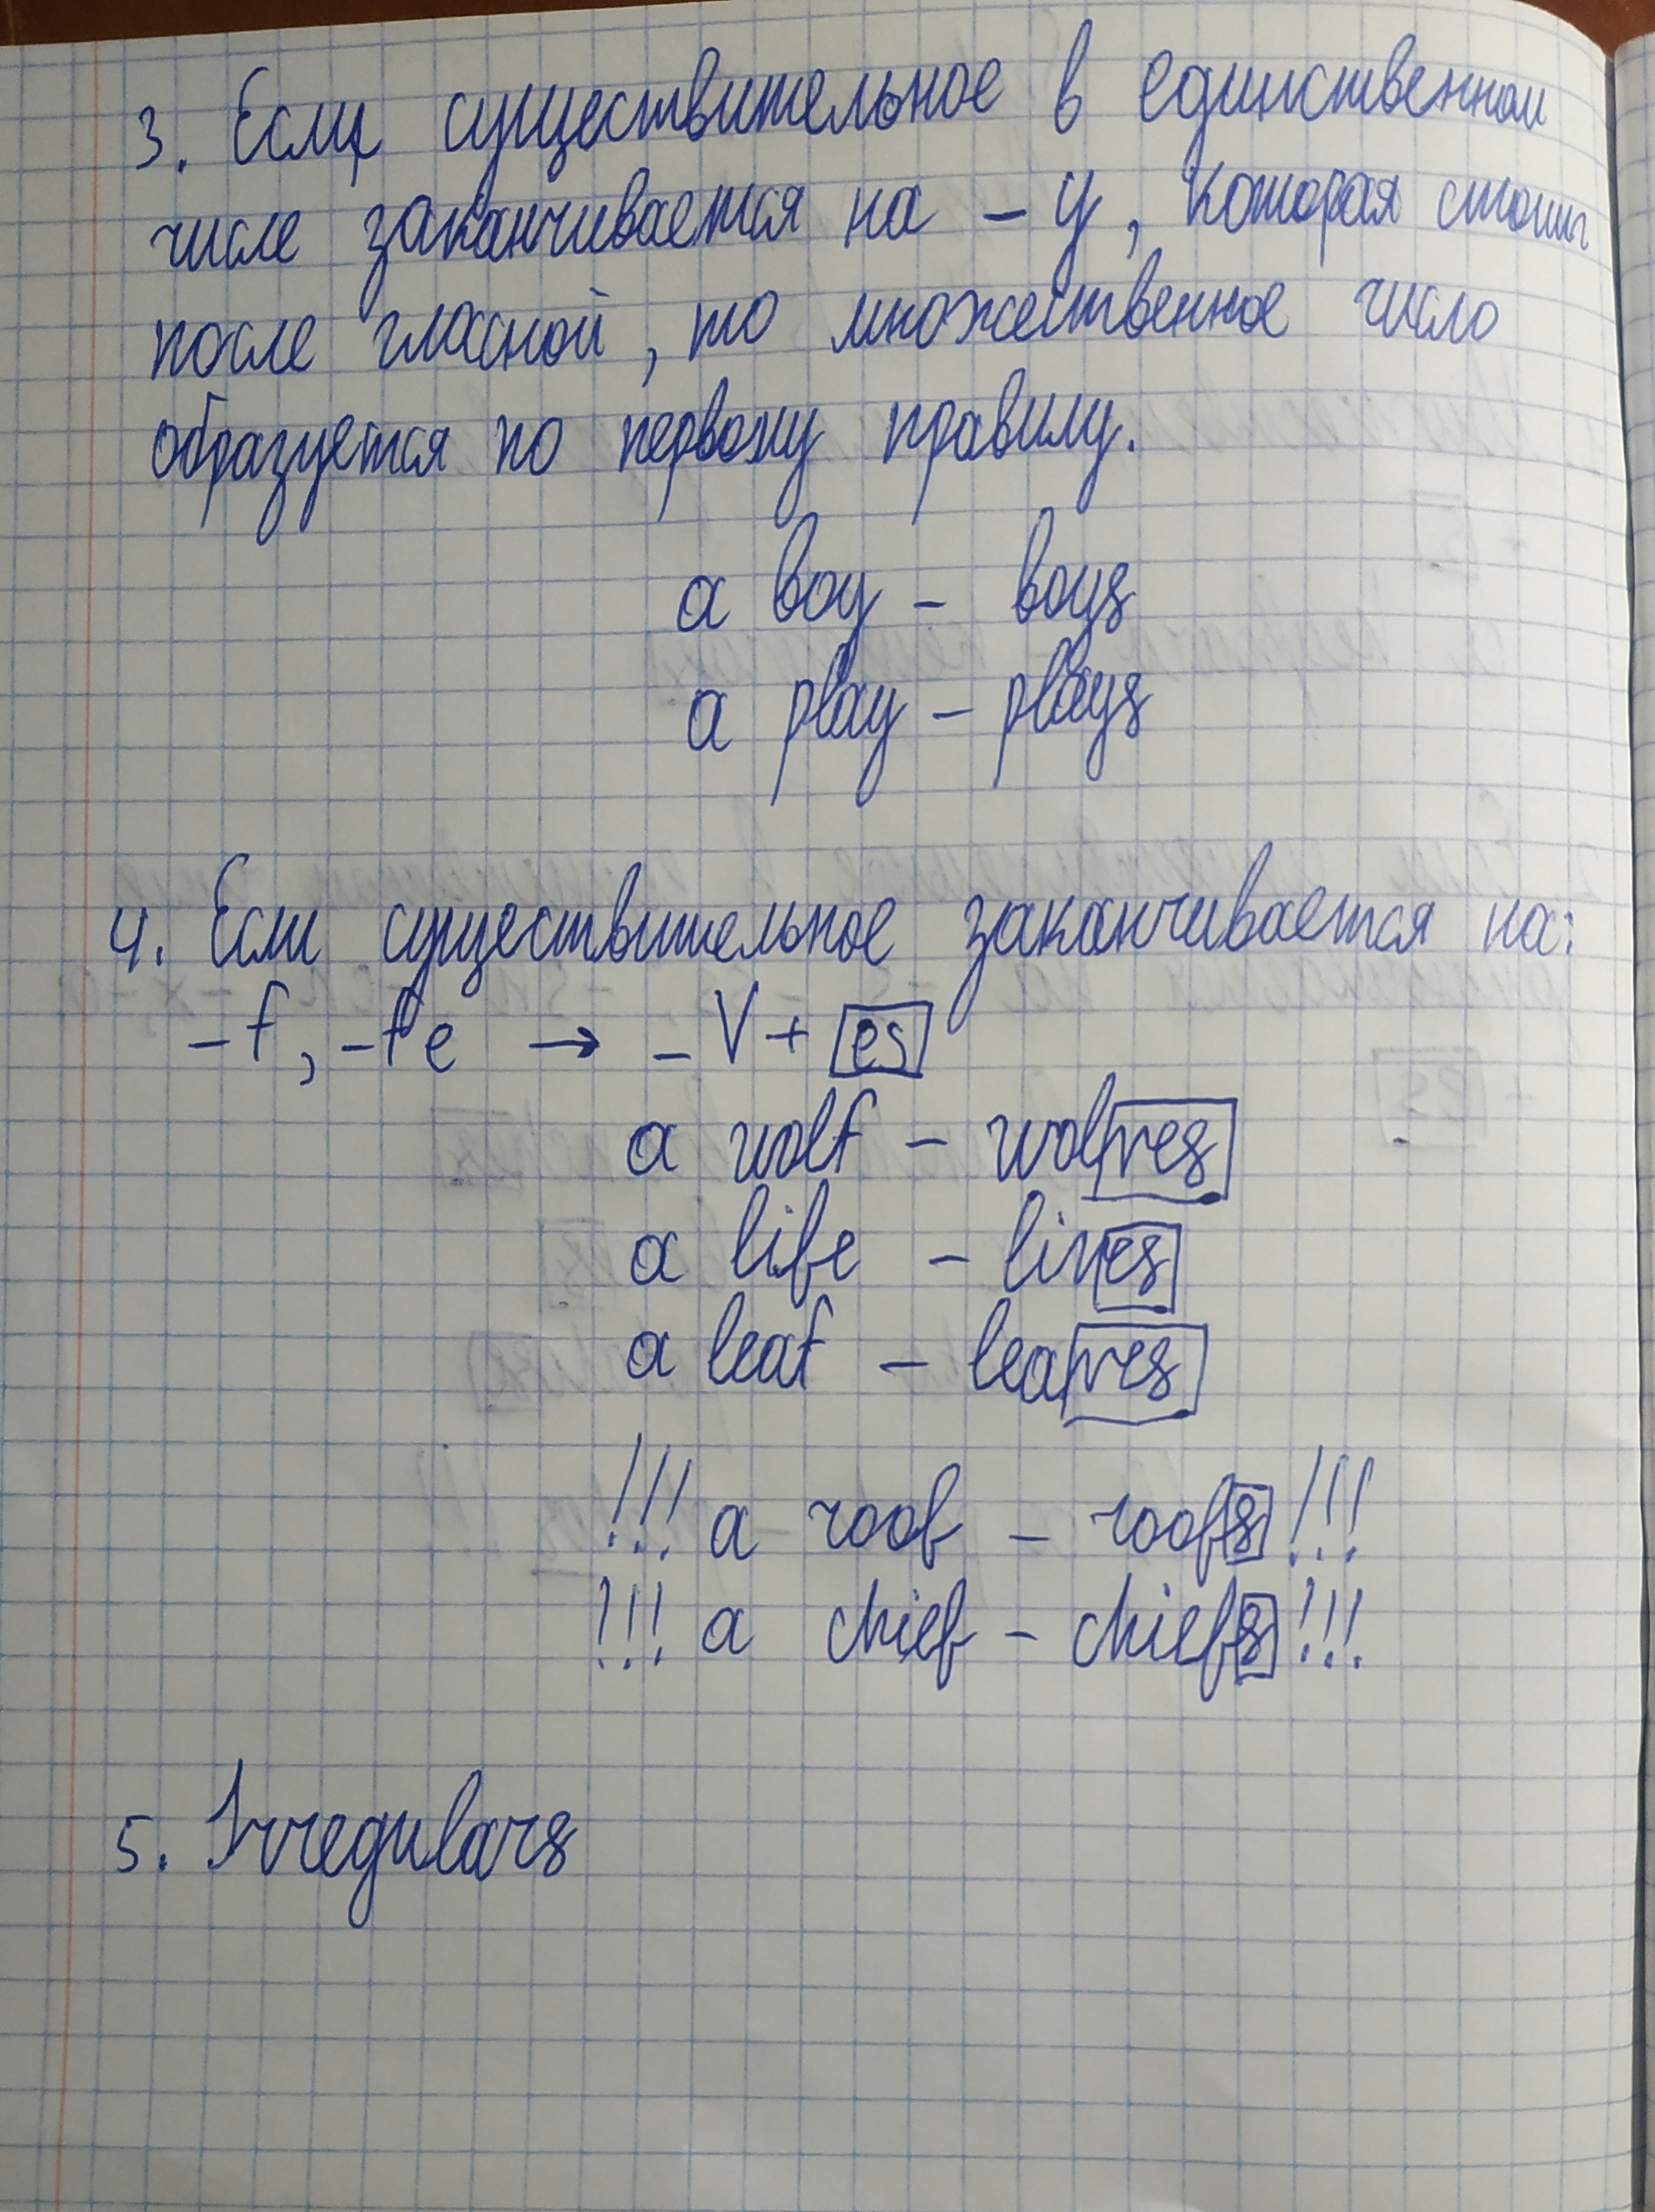 3. Если существительное в единственном
числе заканчивается на – y, которая стоит
после гласной, то множественное число
образуется по первому правилу.
a boy – boys
a play – plays
4. Если существительное заканчивается на:
– f, – fe → – V + es
a wolf – wolves
a life – lives
a leaf – leaves
!!! a roof – roofs !!!
!!! a chief – chiefs !!!
5. Irregulars